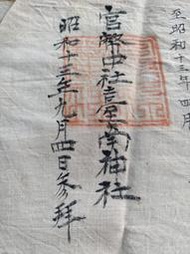 至昭和十三年四月
官幣中社臺南神社
昭和十三年九月四日参拜